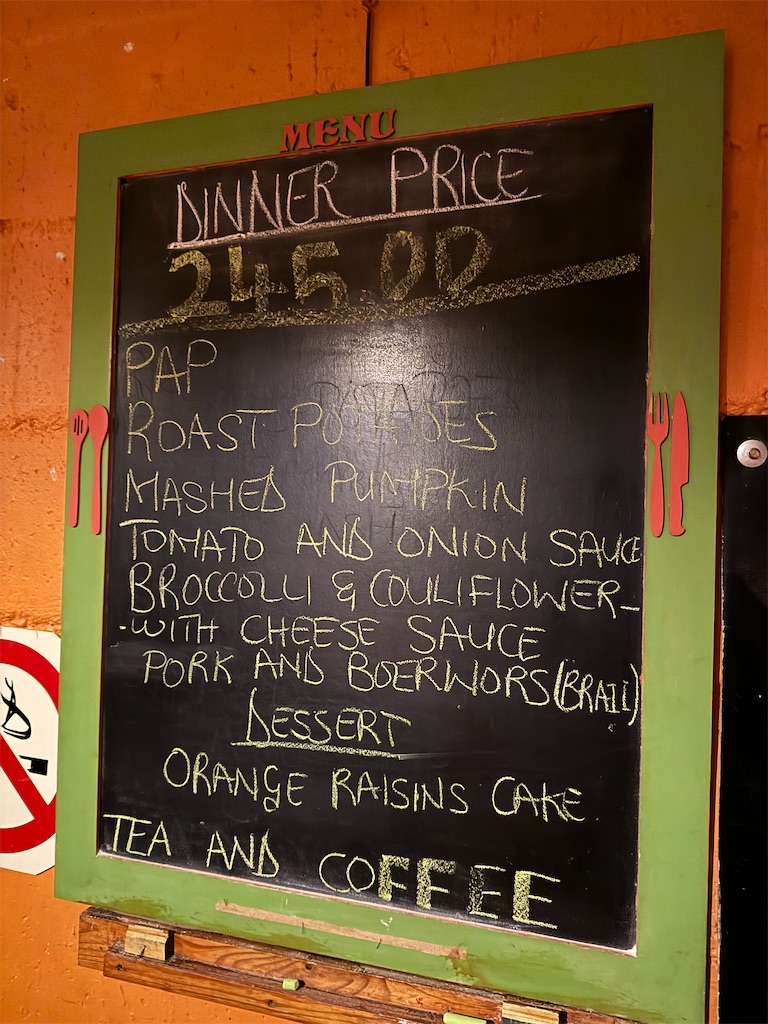 MENU
DINNER PRICE
245.00
PAP
ROAST POTATOES
MASHED PUMPKIN
TOMATO AND ONION SAUCE
BROCCOLLI & COULIFLOWER-
-WITH CHEESE SAUCE
PORK AND BOERWORS (BRAII)
DESSERT
ORANGE RAISINS CAKE
TEA AND COFFEE